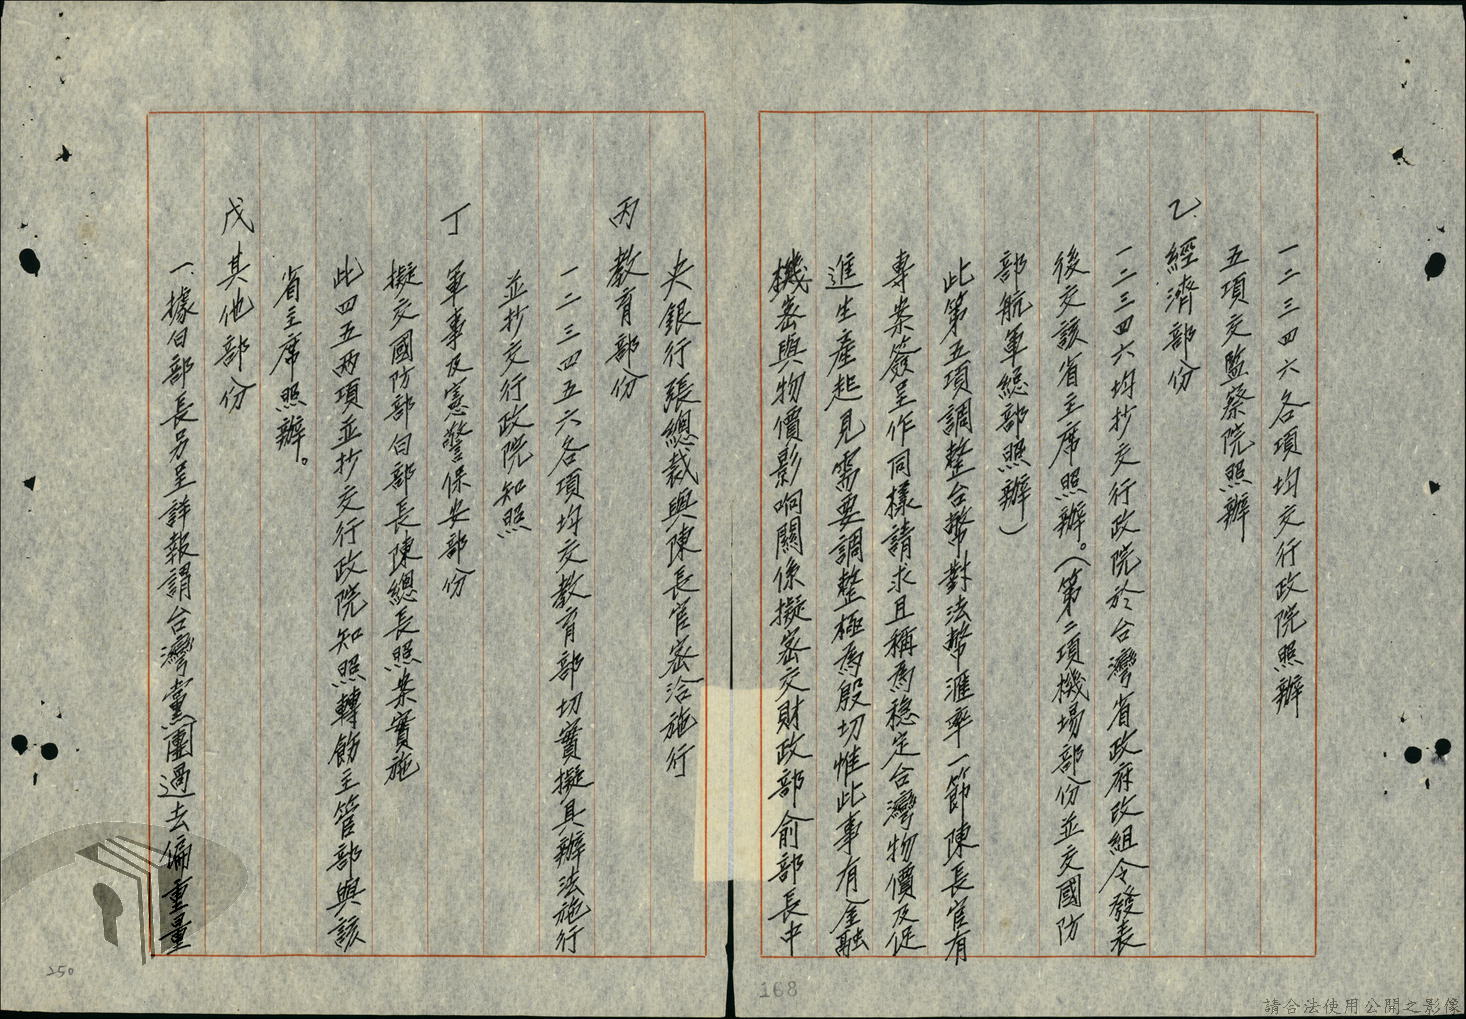 一二三四六各項均交行政院照辦
五項交監察院照辦
乙.經濟部份
一二三四六均抄交行政院於台灣省政府改組令發表
後交該省主席照辦。(第二項機場部份並交國防
部航軍總部照辦)
此第五項調整台幣對法幣滙率一節陳長官有
專案簽呈作同樣請求且稱為穩定台灣物價及促
進生產起見需要調整極為殷切惟此事有金融
機密與物價影响關係擬密交財政部俞部長中
央銀行張總裁與陳長官密洽施行
丙 教育部份
一二三四五六各項均交教育部切實擬具辦法施行
並抄交行政院知照
丁 軍事及憲警保安部份
擬交國防部白部長陳總長照案實施
此四五两項並抄交行政院知照轉飭主管部與該
省主席照辦。
戊 其他部份
一、據白部長另呈詳報謂台灣黨團過去偏重量
168
250
請合法使用公開之影像